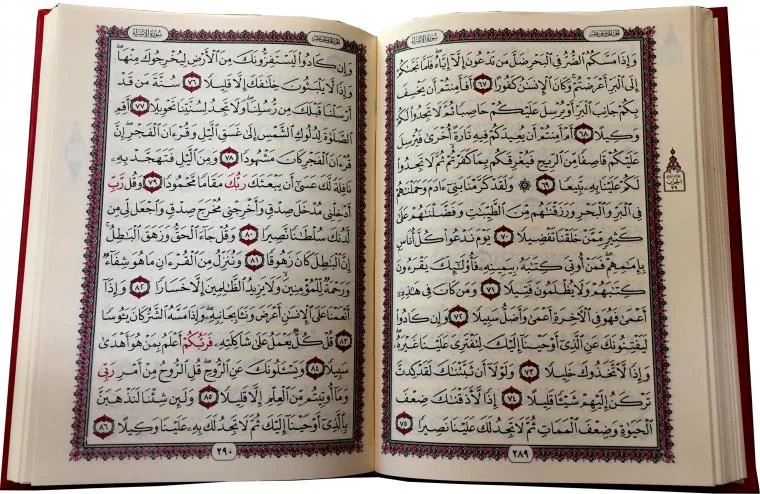 الجُزْءُ الخَامِسَ عَشَرَ
سُورَةُ الإِسْرَاءِ
وَإِذَا مَسَّكُمُ ٱلضُّرُّ فِى ٱلْبَحْرِ ضَلَّ مَن تَدْعُونَ إِلَّآ إِيَّاهُ فَلَمَّا نَجَّىٰكُمْ
إِلَى ٱلْبَرِّ أَعْرَضْتُمْ وَكَانَ ٱلْإِنسَٰنُ كَفُورًا ٦٧ أَفَأَمِنتُمْ أَن يَخْسِفَ
بِكُمْ جَانِبَ ٱلْبَرِّ أَوْ يُرْسِلَ عَلَيْكُمْ حَاصِبًا ثُمَّ لَا تَجِدُوا۟ لَكُمْ
وَكِيلًا ٦٨ أَمْ أَمِنتُمْ أَن يُعِيدَكُمْ فِيهِ تَارَةً أُخْرَىٰ فَيُرْسِلَ
عَلَيْكُمْ قَاصِفًا مِّنَ ٱلرِّيحِ فَيُغْرِقَكُم بِمَا كَفَرْتُمْ ثُمَّ لَا تَجِدُوا۟
لَكُمْ عَلَيْنَا بِهِۦ تَبِيعًا ٦٩ ۞ وَلَقَدْ كَرَّمْنَا بَنِىٓ ءَادَمَ وَحَمَلْنَٰهُمْ
فِى ٱلْبَرِّ وَٱلْبَحْرِ وَرَزَقْنَٰهُم مِّنَ ٱلطَّيِّبَٰتِ وَفَضَّلْنَٰهُمْ عَلَىٰ
كَثِيرٍ مِّمَّنْ خَلَقْنَا تَفْضِيلًا ٧٠ يَوْمَ نَدْعُوا۟ كُلَّ أُنَاسٍۭ
بِإِمَٰمِهِمْ فَمَنْ أُوتِىَ كِتَٰبَهُۥ بِيَمِينِهِۦ فَأُو۟لَٰٓئِكَ يَقْرَءُونَ
كِتَٰبَهُمْ وَلَا يُظْلَمُونَ فَتِيلًا ٧١ وَمَن كَانَ فِى هَٰذِهِۦٓ
أَعْمَىٰ فَهُوَ فِى ٱلْءَاخِرَةِ أَعْمَىٰ وَأَضَلُّ سَبِيلًا ٧٢ وَإِن كَادُوا۟
لَيَفْتِنُونَكَ عَنِ ٱلَّذِىٓ أَوْحَيْنَآ إِلَيْكَ لِتَفْتَرِىَ عَلَيْنَا غَيْرَهُۥ
وَإِذًا لَّٱتَّخَذُوكَ خَلِيلًا ٧٣ وَلَوْلَآ أَن ثَبَّتْنَٰكَ لَقَدْ كِدتَّ
تَرْكَنُ إِلَيْهِمْ شَيْـًٔا قَلِيلًا ٧٤ إِذًا لَّأَذَقْنَٰكَ ضِعْفَ
ٱلْحَيَوٰةِ وَضِعْفَ ٱلْمَمَاتِ ثُمَّ لَا تَجِدُ لَكَ عَلَيْنَا نَصِيرًا ٧٥
٢٨٩
الجُزْءُ الخَامِسَ عَشَرَ
سُورَةُ الإِسْرَاءِ
وَإِن كَادُوا۟ لَيَسْتَفِزُّونَكَ مِنَ ٱلْأَرْضِ لِيُخْرِجُوكَ مِنْهَا
وَإِذًا لَّا يَلْبَثُونَ خِلَٰفَكَ إِلَّا قَلِيلًا ٧٦ سُنَّةَ مَن قَدْ
أَرْسَلْنَا قَبْلَكَ مِن رُّسُلِنَا وَلَا تَجِدُ لِسُنَّتِنَا تَحْوِيلًا ٧٧ أَقِمِ
ٱلصَّلَوٰةَ لِدُلُوكِ ٱلشَّمْسِ إِلَىٰ غَسَقِ ٱلَّيْلِ وَقُرْءَانَ ٱلْفَجْرِ إِنَّ
قُرْءَانَ ٱلْفَجْرِ كَانَ مَشْهُودًا ٧٨ وَمِنَ ٱلَّيْلِ فَتَهَجَّدْ بِهِۦ
نَافِلَةً لَّكَ عَسَىٰٓ أَن يَبْعَثَكَ رَبُّكَ مَقَامًا مَّحْمُودًا ٧٩ وَقُل رَّبِّ
أَدْخِلْنِى مُدْخَلَ صِدْقٍ وَأَخْرِجْنِى مُخْرَجَ صِدْقٍ وَٱجْعَل لِّى مِن
لَّدُنكَ سُلْطَٰنًا نَّصِيرًا ٨٠ وَقُلْ جَآءَ ٱلْحَقُّ وَزَهَقَ ٱلْبَٰطِلُ
إِنَّ ٱلْبَٰطِلَ كَانَ زَهُوقًا ٨١ وَنُنَزِّلُ مِنَ ٱلْقُرْءَانِ مَا هُوَ شِفَآءٌ
وَرَحْمَةٌ لِّلْمُؤْمِنِينَ وَلَا يَزِيدُ ٱلظَّٰلِمِينَ إِلَّا خَسَارًا ٨٢ وَإِذَآ
أَنْعَمْنَا عَلَى ٱلْإِنسَٰنِ أَعْرَضَ وَنَـَٔا بِجَانِبِهِۦ وَإِذَا مَسَّهُ ٱلشَّرُّ كَانَ يَـُٔوسًا
٨٣ قُلْ كُلٌّ يَعْمَلُ عَلَىٰ شَاكِلَتِهِۦ فَرَبُّكُمْ أَعْلَمُ بِمَنْ هُوَ أَهْدَىٰ
سَبِيلًا ٨٤ وَيَسْـَٔلُونَكَ عَنِ ٱلرُّوحِ قُلِ ٱلرُّوحُ مِنْ أَمْرِ رَبِّى
وَمَآ أُوتِيتُم مِّنَ ٱلْعِلْمِ إِلَّا قَلِيلًا ٨٥ وَلَئِن شِئْنَا لَنَذْهَبَنَّ
بِٱلَّذِىٓ أَوْحَيْنَآ إِلَيْكَ ثُمَّ لَا تَجِدُ لَكَ بِهِۦ عَلَيْنَا وَكِيلًا ٨٦
٢٩٠